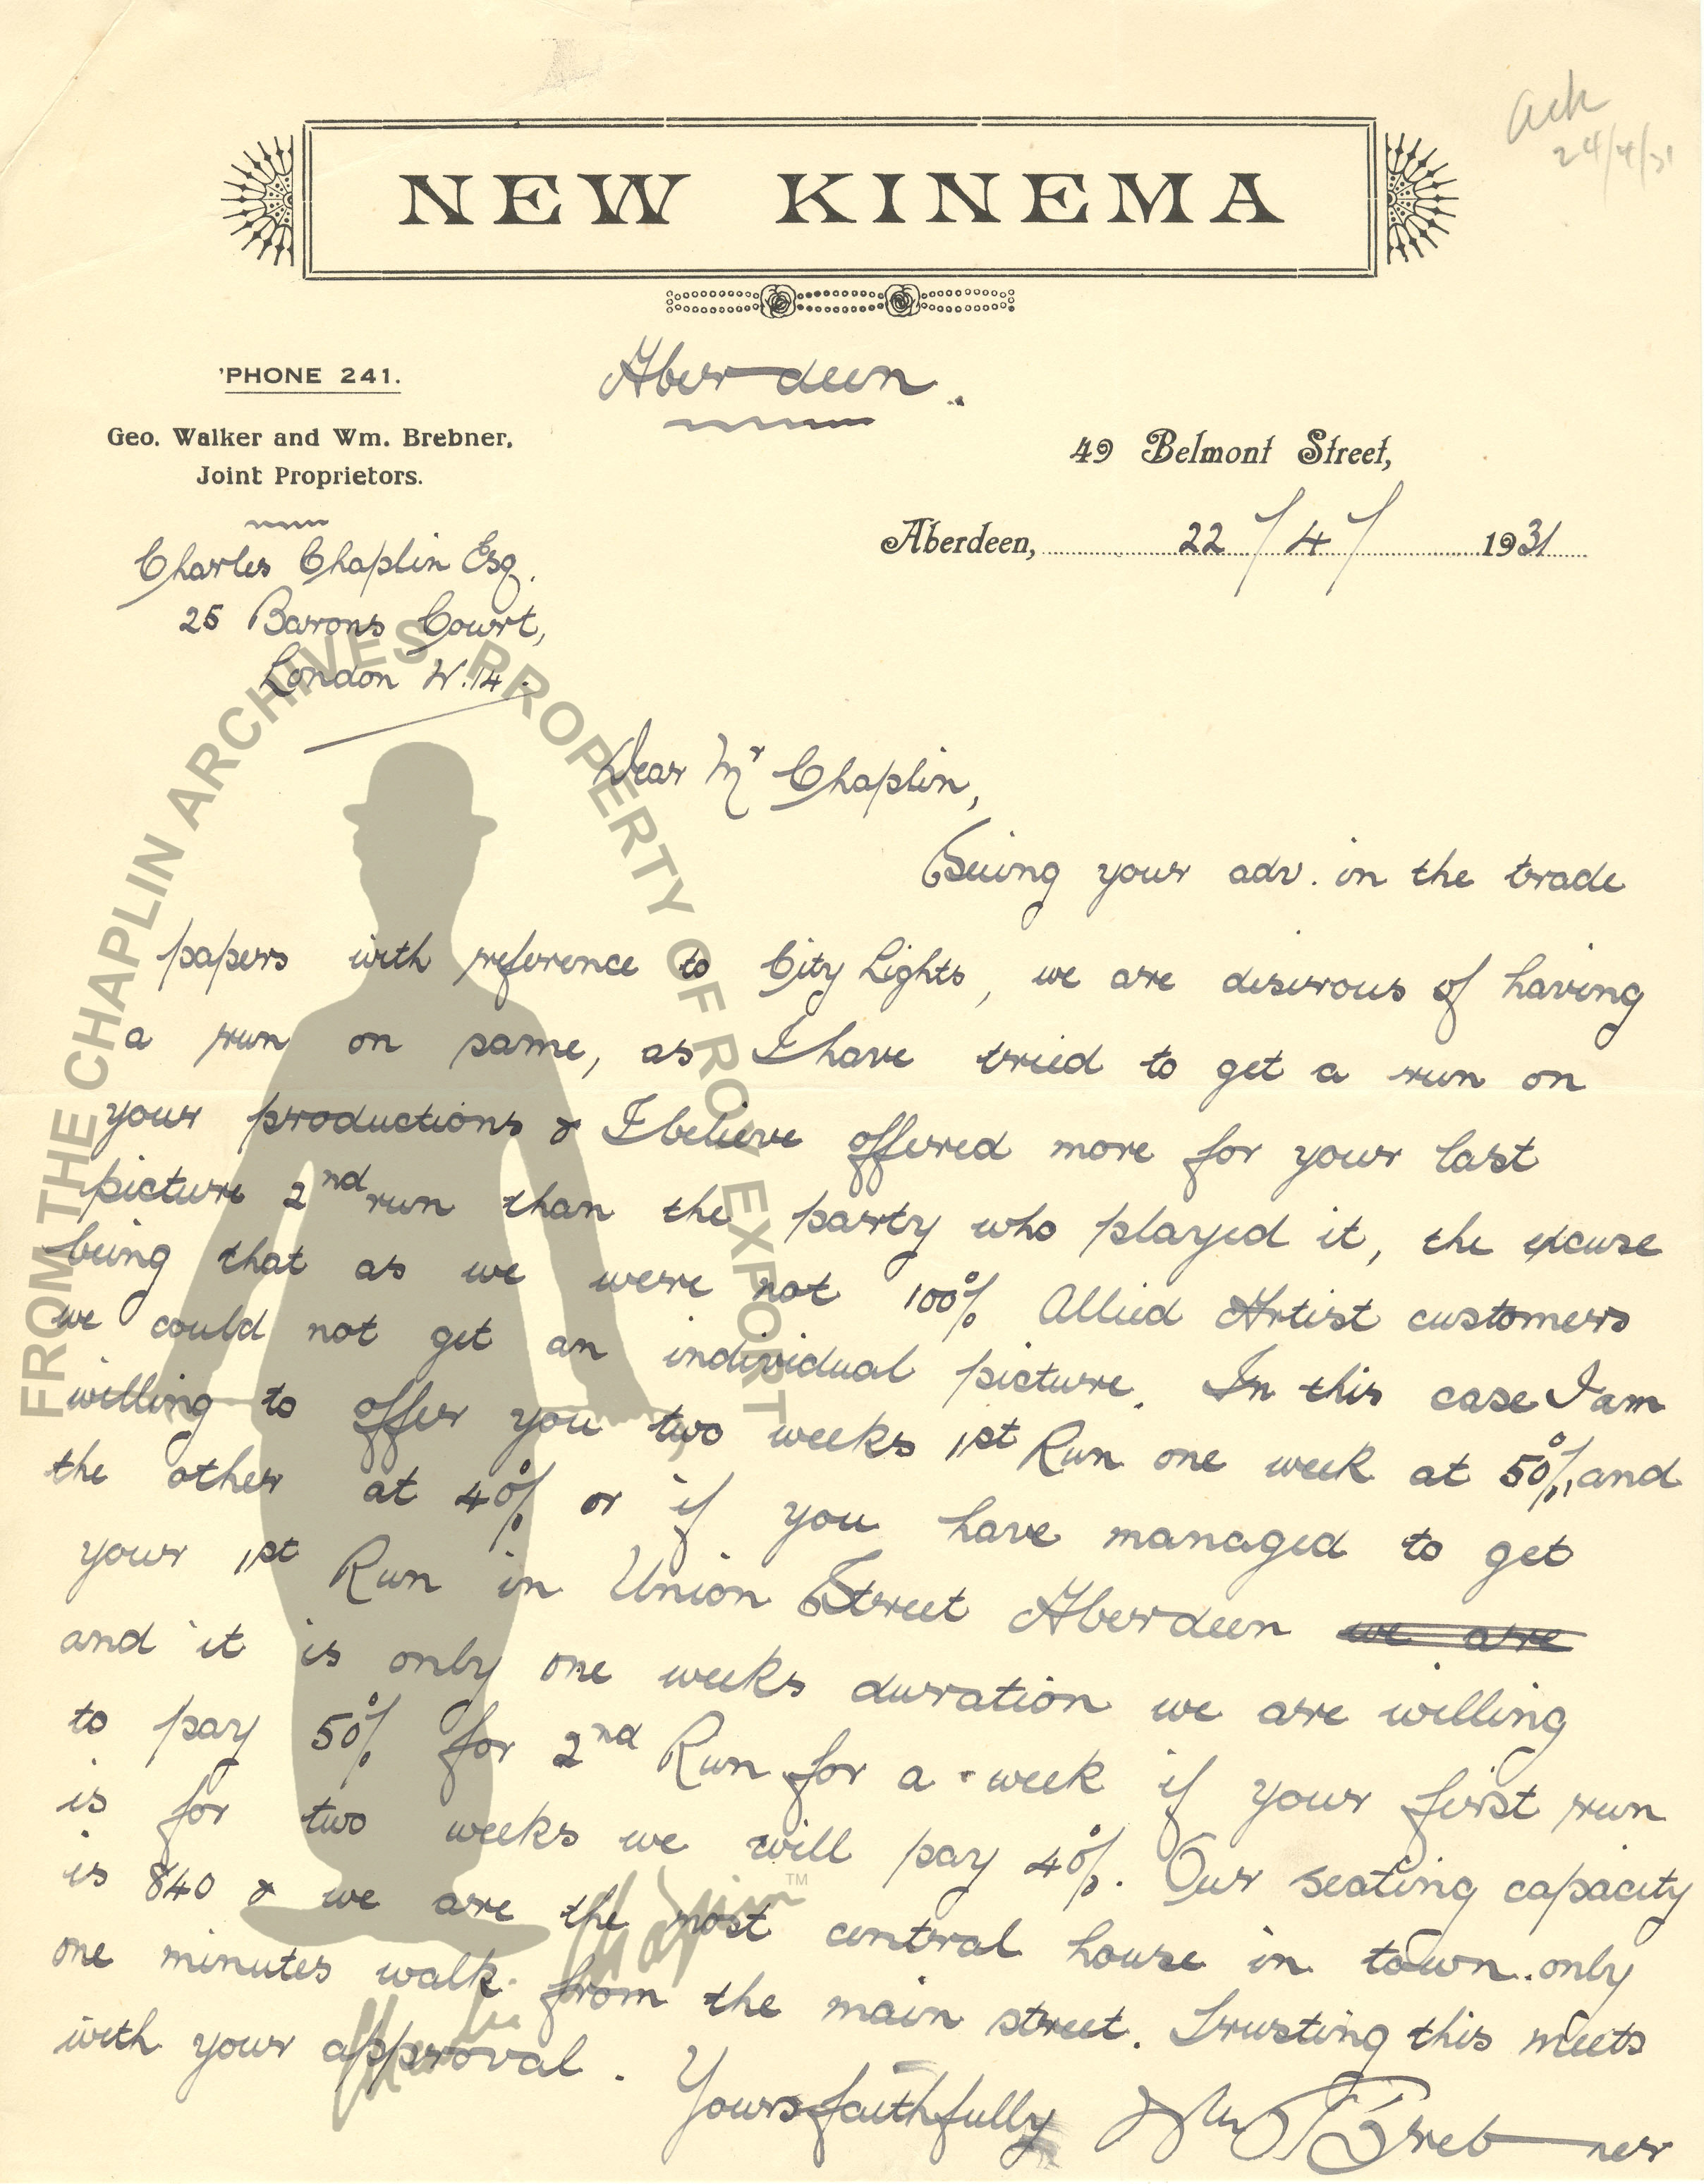 Ack
24/4/31
NEW KINEMA
'PHONE 241.
Aberdeen.
Geo. Walker and Wm. Brebner,
Joint Proprietors.
49 Belmont Street,
Aberdeen, 22/4/1931
Charles Chaplin Esq.
25 Barons Court,
London W.14.
Dear Mr Chaplin,
Seeing your adv. in the trade
papers with reference to City Lights, we are desirous of having
a run on same, as I have tried to get a run on
your productions & I believe offered more for your last
picture 2nd run than the party who played it, the excuse
being that as we were not 100% Allied Artist customers
we could not get an individual picture. In this case I am
willing to offer you two weeks 1st Run one week at 50%, and
the other at 40% or if you have managed to get
your 1st Run in Union Street Aberdeen we are
and it is only one weeks duration we are willing
to pay 50% for 2nd Run for a week if your first run
is for two weeks we will pay 40%. Our seating capacity
is 840 & we are the most central house in town. only
one minutes walk from the main street. Trusting this meets
with your approval.
Yours faithfully Wm Brebner
FROM THE CHAPLIN ARCHIVES PROPERTY OF ROY EXPORT
Charlie Chaplin TM